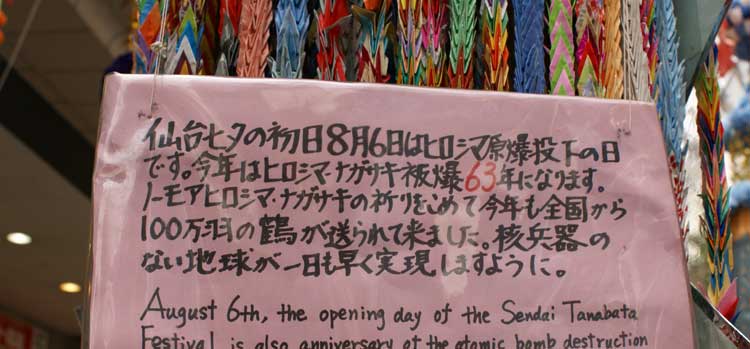 仙台七夕の初日8月6日はヒロシマ原爆投下の日
です。今年はヒロシマ・ナガサキ被爆63年になります。
ノーモアヒロシマ・ナガサキの祈りをこめて今年も全国から
100万羽の鶴が送られて来ました。核兵器の
ない地球が一日も早く実現しますように。
August 6th, the opening day of the Sendai Tanabata
Festival is also anniversary of the atomic bomb destruction